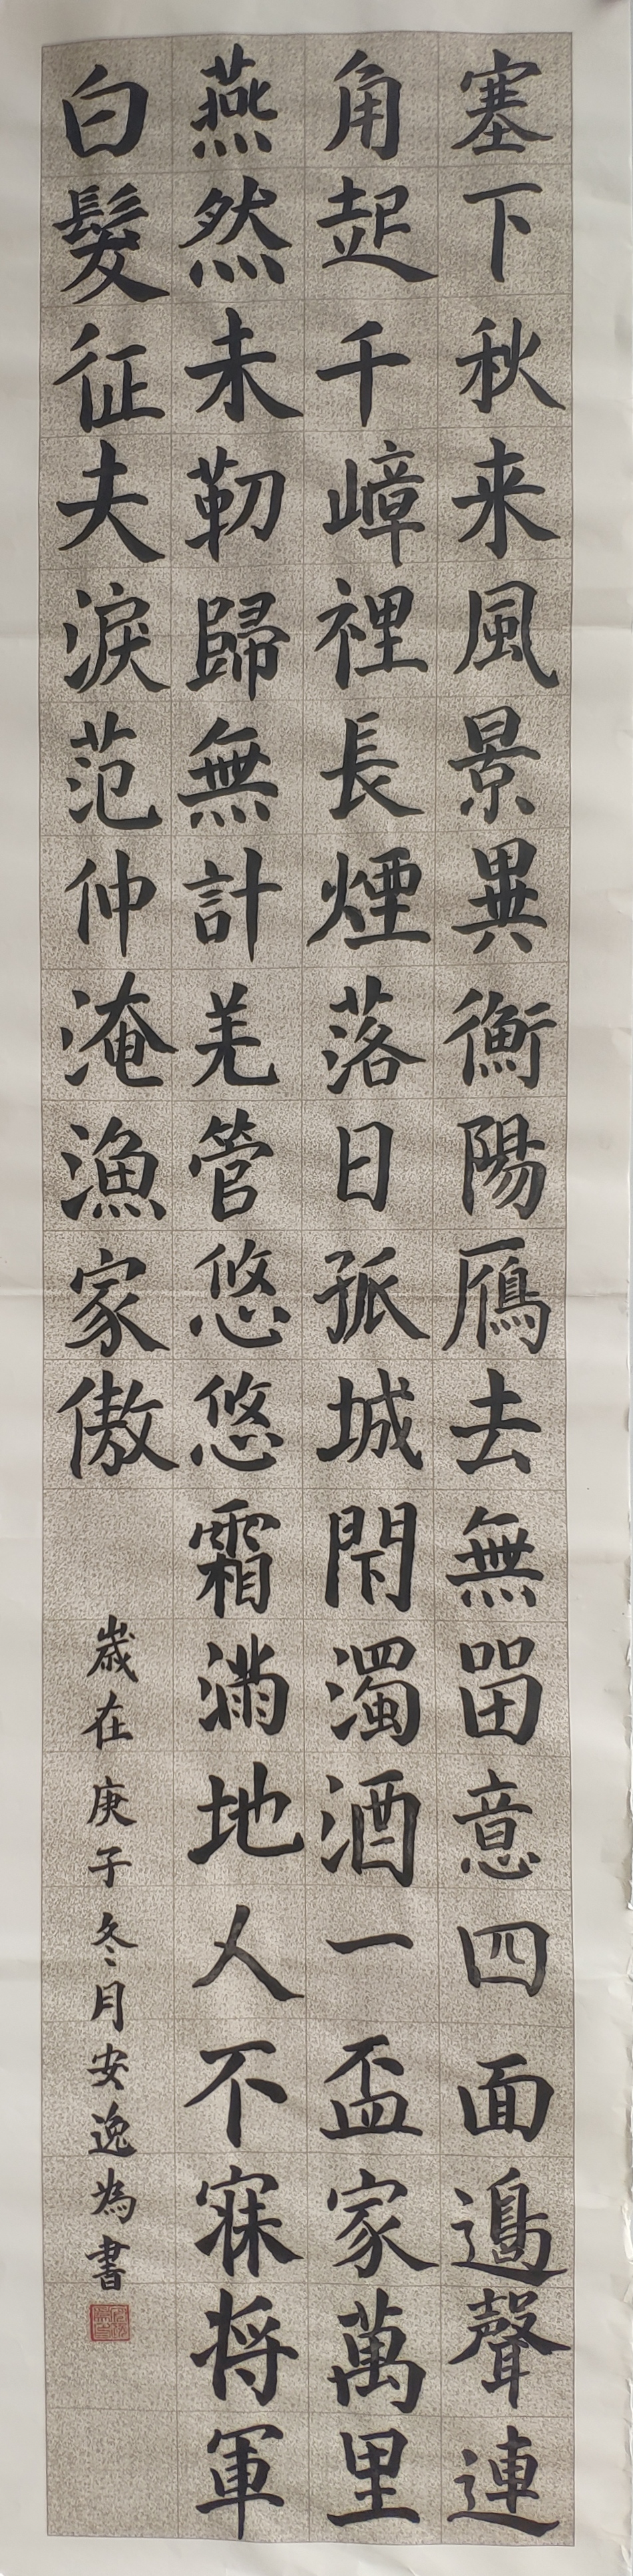 塞下秋来風景異衡陽雁去無畱意四面邊聲連
角起千嶂裡長煙落日孤城閇濁酒一盃家萬里
燕然未靭歸無計羌管悠悠霜滿地人不寐将軍
白髮征夫淚范仲淹漁家傲
歲在庚子冬月安逸為書